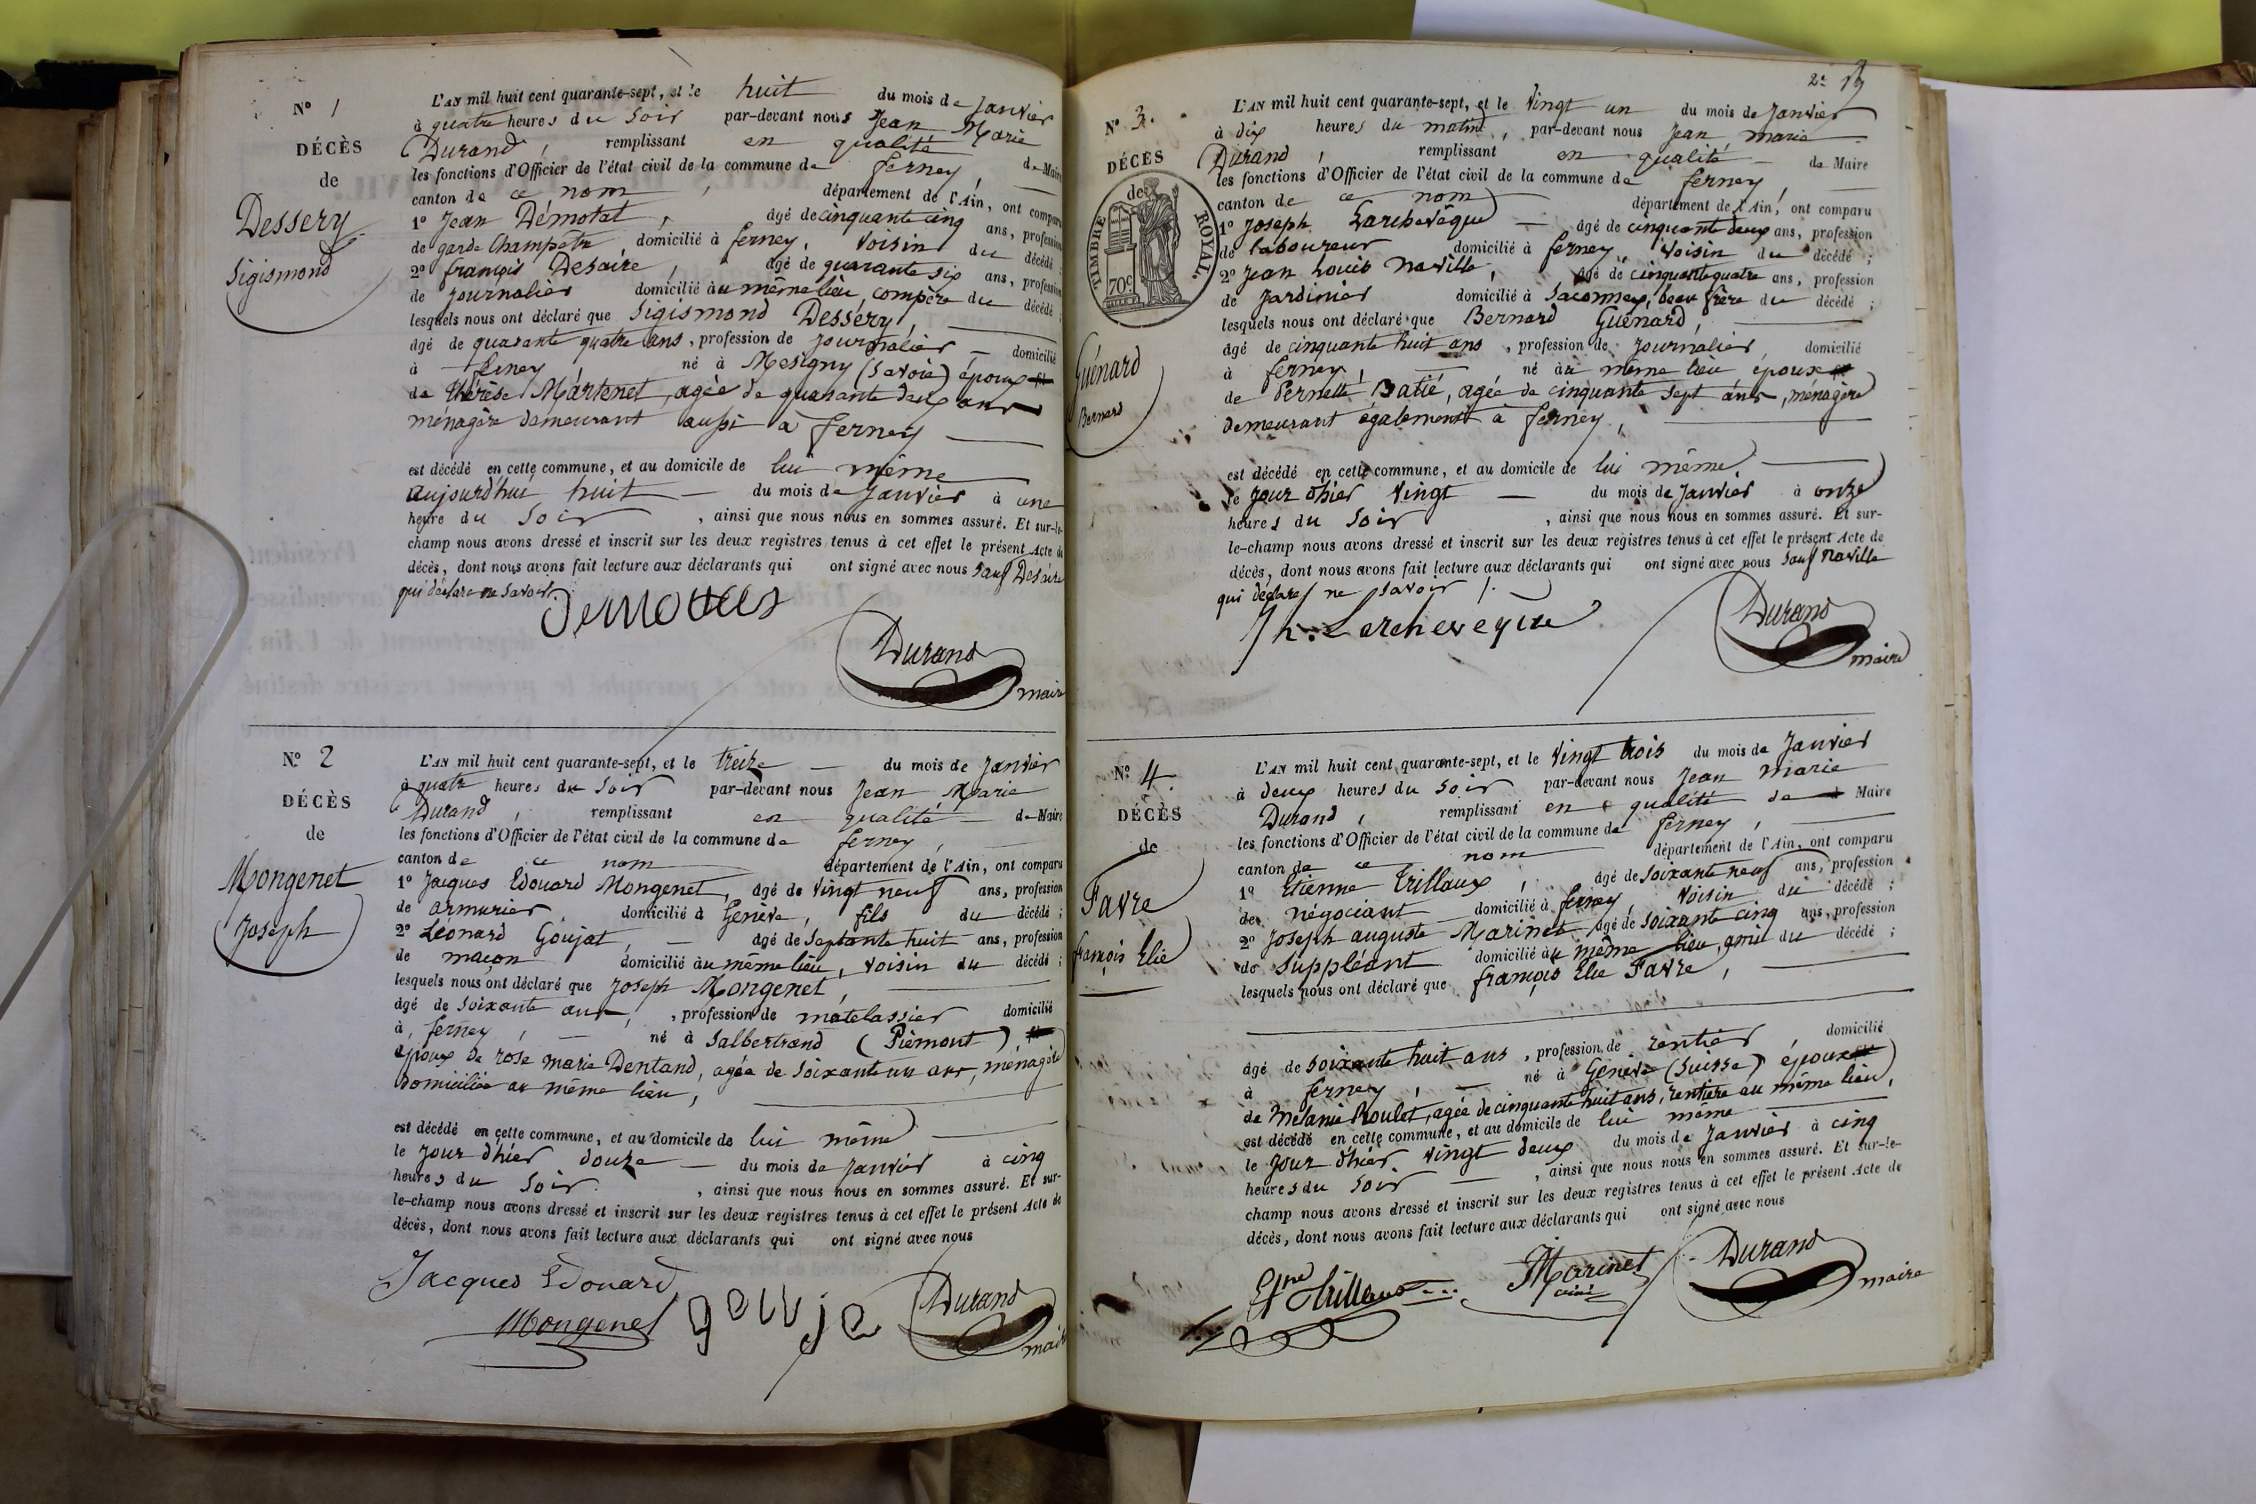 N° 1
DÉCÈS
de
Dessery
Sigismond
L'AN mil huit cent quarante-sept, et le huit du mois de Janvier
à quatre heures du Soir par-devant nous Jean Marie
Durand, remplissant en qualité de Maire
les fonctions d'Officier de l'état civil de la commune de ferney,
canton de ce nom, département de l'Ain, ont comparu
1° Jean Démotat, âgé de cinquante cinq ans, profession
de garde Champêtre domicilié à ferney, Voisin du décédé ;
2° françois Desaire, âgé de quarante six ans, profession
de Journalier domicilié au même lieu, compère du décédé ;
lesquels nous ont déclaré que Sigismond Dessery,
âgé de quarante quatre ans, profession de journalier domicilié
à ferney né à Mesigny (Savoie) époux
de Thérèse Martenet, agée de quarante deux ans
ménagère demeurant aussi à ferney
est décédé en cette commune, et au domicile de lui même
aujourd'hui huit du mois de Janvier à une
heure du Soir, ainsi que nous nous en sommes assuré. Et sur-le-
champ nous avons dressé et inscrit sur les deux registres tenus à cet effet le présent Acte de
décès, dont nous avons fait lecture aux déclarants qui ont signé avec nous Sauf Desaire
qui déclare ne savoir.
Durand
maire
N° 2
DÉCÈS
de
Mongenet
Joseph
L'AN mil huit cent quarante-sept, et le treize du mois de Janvier
à quatre heures du Soir par-devant nous Jean Marie
Durand, remplissant en qualité de Maire
les fonctions d'Officier de l'état civil de la commune de ferney,
canton de ce nom département de l'Ain, ont comparu
1° Jacques Edouard Mongenet, âgé de Vingt neuf ans, profession
de armurier domicilié à Genève, fils du décédé ;
2° Léonard Goujat, âgé de Septante huit ans, profession
de maçon domicilié au même lieu, Voisin du décédé ;
lesquels nous ont déclaré que Joseph Mongenet,
âgé de soixante ans, profession de matelassier domicilié
à ferney, né à Salbertrand (Piémont),
époux de rose marie Dentand, agée de Soixante un ans, ménagère
domiciliée au même lieu,
est décédé en cette commune, et au domicile de lui même
le jour d'hier douze du mois de Janvier à cinq
heures du Soir, ainsi que nous nous en sommes assuré. Et sur-
le-champ nous avons dressé et inscrit sur les deux registres tenus à cet effet le présent Acte de
décès, dont nous avons fait lecture aux déclarants qui ont signé avec nous
Jacques Edouard
Mongenet gouja Durand
maire
2e 19
N° 3.
DÉCÈS
de
TIMBRE ROYAL.
70c
Guénard
Bernard
L'AN mil huit cent quarante-sept, et le Vingt un du mois de Janvier
à dix heures du matin, par-devant nous Jean Marie
Durand, remplissant en qualité de Maire
les fonctions d'Officier de l'état civil de la commune de ferney,
canton de ce nom département de l'Ain, ont comparu
1° Joseph Larchevêque âgé de cinquante deux ans, profession
de laboureur domicilié à ferney, Voisin du décédé ;
2° Jean Louis Naville, âgé de cinquante quatre ans, profession
de Jardinier domicilié à Saconnex, beau frère du décédé ;
lesquels nous ont déclaré que Bernard Guénard,
âgé de cinquante huit ans, profession de journalier, domicilié
à ferney, né au même lieu époux
de Pernette Batié, agée de cinquante sept ans, ménagère
demeurant également à ferney,
est décédé en cette commune, et au domicile de lui même,
le jour d'hier Vingt du mois de Janvier à onze
heures du Soir, ainsi que nous nous en sommes assuré. Et sur-
le-champ nous avons dressé et inscrit sur les deux registres tenus à cet effet le présent Acte de
décès, dont nous avons fait lecture aux déclarants qui ont signé avec nous Sauf Naville
qui déclare ne savoir.
Jh. Larcheveque Durand
maire
N° 4.
DÉCÈS
de
Favre
françois Elie
L'AN mil huit cent quarante-sept, et le Vingt trois du mois de Janvier
à deux heures du Soir par-devant nous Jean Marie
Durand, remplissant en qualité de Maire
les fonctions d'Officier de l'état civil de la commune de ferney,
canton de ce nom département de l'Ain, ont comparu
1° Etienne Trillaux, âgé de soixante neuf ans, profession
de négociant domicilié à ferney, Voisin du décédé ;
2° Joseph auguste Marinet âgé de soixante cinq ans, profession
de Suppléant domicilié au même lieu, ami du décédé ;
lesquels nous ont déclaré que françois Elie Favre,
âgé de soixante huit ans, profession de rentier domicilié
à ferney, né à Genève (Suisse) époux
de Mélanie Roulet, agée de cinquante huit ans, rentière au même lieu,
est décédé en cette commune, et au domicile de lui même
le jour d'hier Vingt deux du mois de Janvier à cinq
heures du Soir, ainsi que nous nous en sommes assuré. Et sur-le-
champ nous avons dressé et inscrit sur les deux registres tenus à cet effet le présent Acte de
décès, dont nous avons fait lecture aux déclarants qui ont signé avec nous
Etne Trillaux Marinet Durand
ainé maire